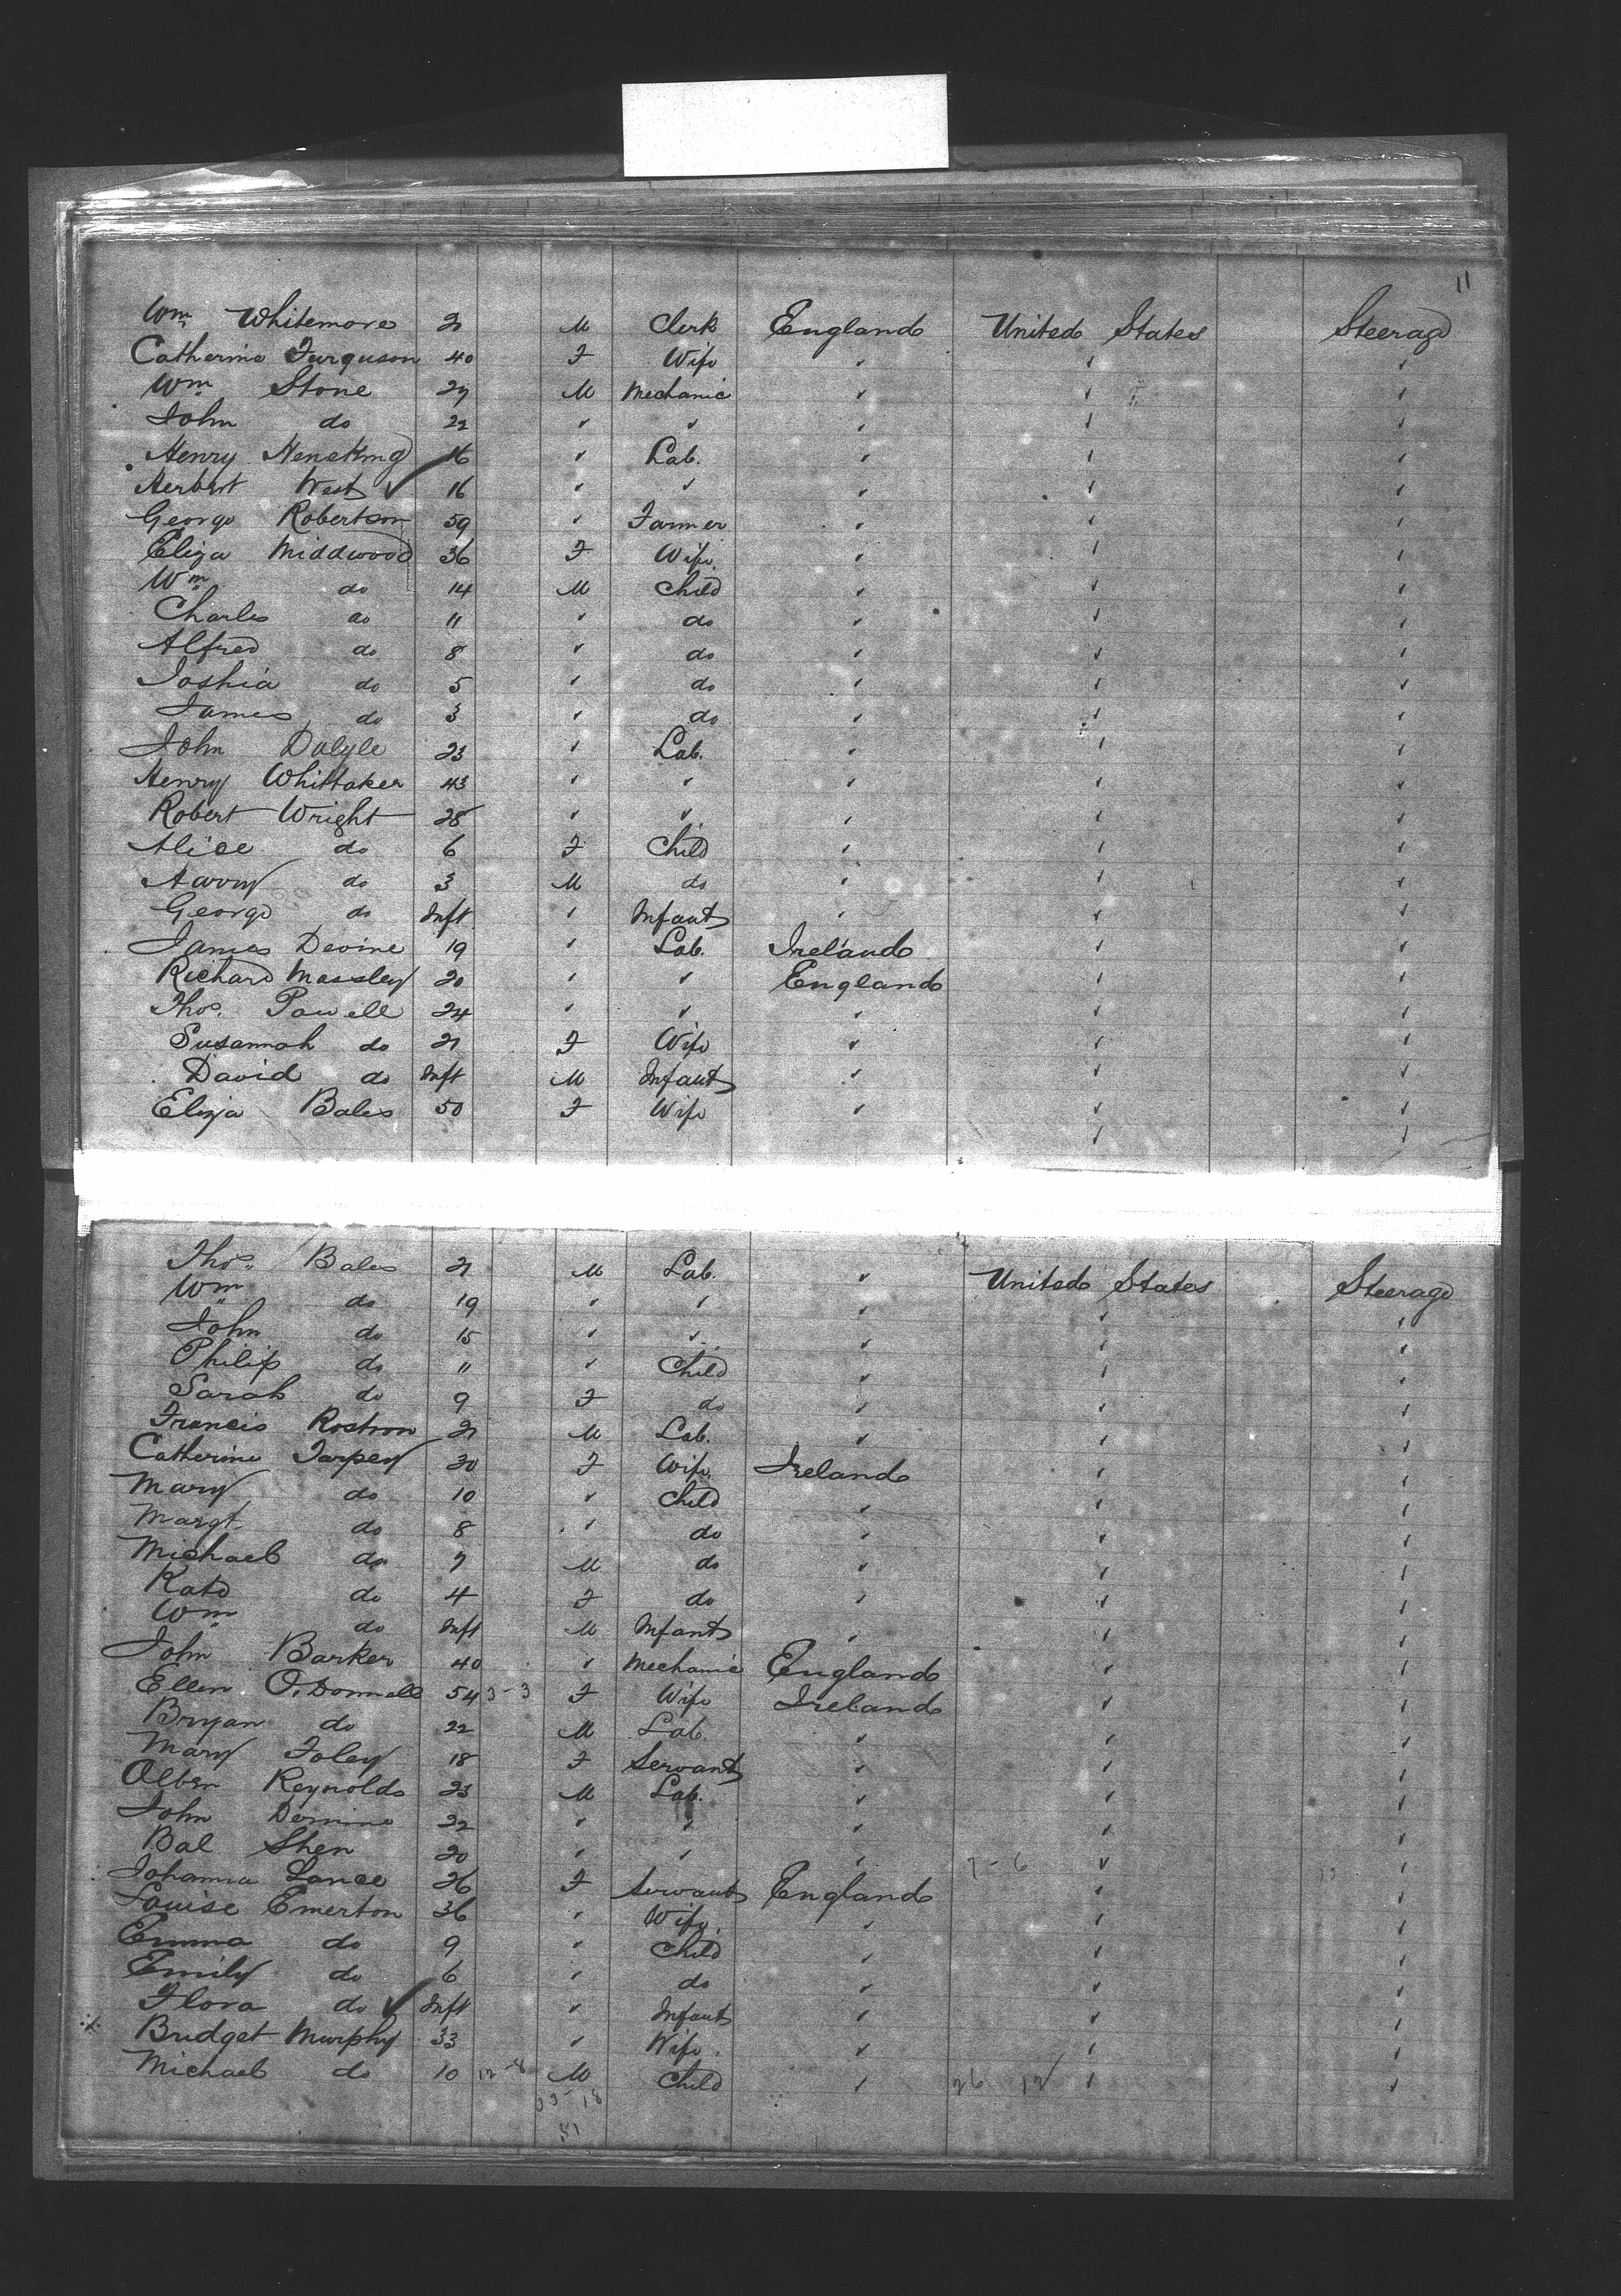 11
Wm Whitemore 21 M Clerk England United States Steerage
Catherine Furguson 40 F Wife ✓ ✓ ✓
Wm Stone 27 M Mechanic ✓ ✓ ✓
John do 22 ✓ ✓ ✓ ✓ ✓
Henry 16 ✓ Lab. ✓ ✓ ✓
Herbert West ✓ 16 ✓ ✓ ✓ ✓ ✓
George Robertson 59 ✓ Farmer ✓ ✓ ✓
Eliza Middwood 36 F Wife ✓ ✓ ✓
Wm do 14 M Child ✓ ✓ ✓
Charles do 11 ✓ do ✓ ✓ ✓
Alfred do 8 ✓ do ✓ ✓ ✓
Joshia do 5 ✓ do ✓ ✓ ✓
James do 3 ✓ do ✓ ✓ ✓
John Dalyle 23 ✓ Lab. ✓ ✓ ✓
Henry Whittaker 43 ✓ ✓ ✓ ✓ ✓
Robert Wright 28 ✓ ✓ ✓ ✓ ✓
Alice do 6 F Child ✓ ✓ ✓
do 3 M do ✓ ✓ ✓
George do Inft ✓ Infant ✓ ✓ ✓
James Devine 19 ✓ Lab. Ireland ✓ ✓
Richard Massley 20 ✓ ✓ England ✓ ✓
Thos. Powell 24 ✓ ✓ ✓ ✓ ✓
Susannah do 21 F Wife ✓ ✓ ✓
David do Inft M Infant ✓ ✓ ✓
Eliza Bales 50 F Wife ✓ ✓ ✓
✓ ✓
Thos. Bales 21 M Lab. ✓ United States Steerage
Wm do 19 ✓ ✓ ✓ ✓ ✓
John do 15 ✓ ✓ ✓ ✓ ✓
Philip do 11 ✓ Child ✓ ✓ ✓
Sarah do 9 F do ✓ ✓ ✓
Francis Rostron 21 M Lab. ✓ ✓ ✓
Catherine Tarpey 30 F Wife Ireland ✓ ✓
Mary do 10 ✓ Child ✓ ✓ ✓
Margt. do 8 ✓ do ✓ ✓ ✓
Michael do 7 M do ✓ ✓ ✓
Kate do 4 F do ✓ ✓ ✓
Wm do Inft M Infant ✓ ✓ ✓
John Barker 40 ✓ Mechanic England ✓ ✓
Ellen O.Donnell 54 3-3 F Wife Ireland ✓ ✓
Bryan do 22 M Lab. ✓ ✓ ✓
Mary Foley 18 F Servant ✓ ✓ ✓
Reynolds 23 M Lab. ✓ ✓ ✓
John 22 ✓ ✓ ✓ ✓ ✓
Bal Shen 20 ✓ ✓ ✓ 7-6 ✓ ✓
Johanna Lance 26 F Servant England ✓ ✓
Louise Emerton 36 ✓ Wife ✓ ✓ ✓
Emma do 9 ✓ Child ✓ ✓ ✓
Emily do 6 ✓ do ✓ ✓ ✓
Flora do ✓ Inft ✓ Infant ✓ ✓ ✓
Bridget Murphy 33 ✓ Wife ✓ ✓ ✓
Michael do 10 12-8 M Child ✓ 26 12 ✓ ✓